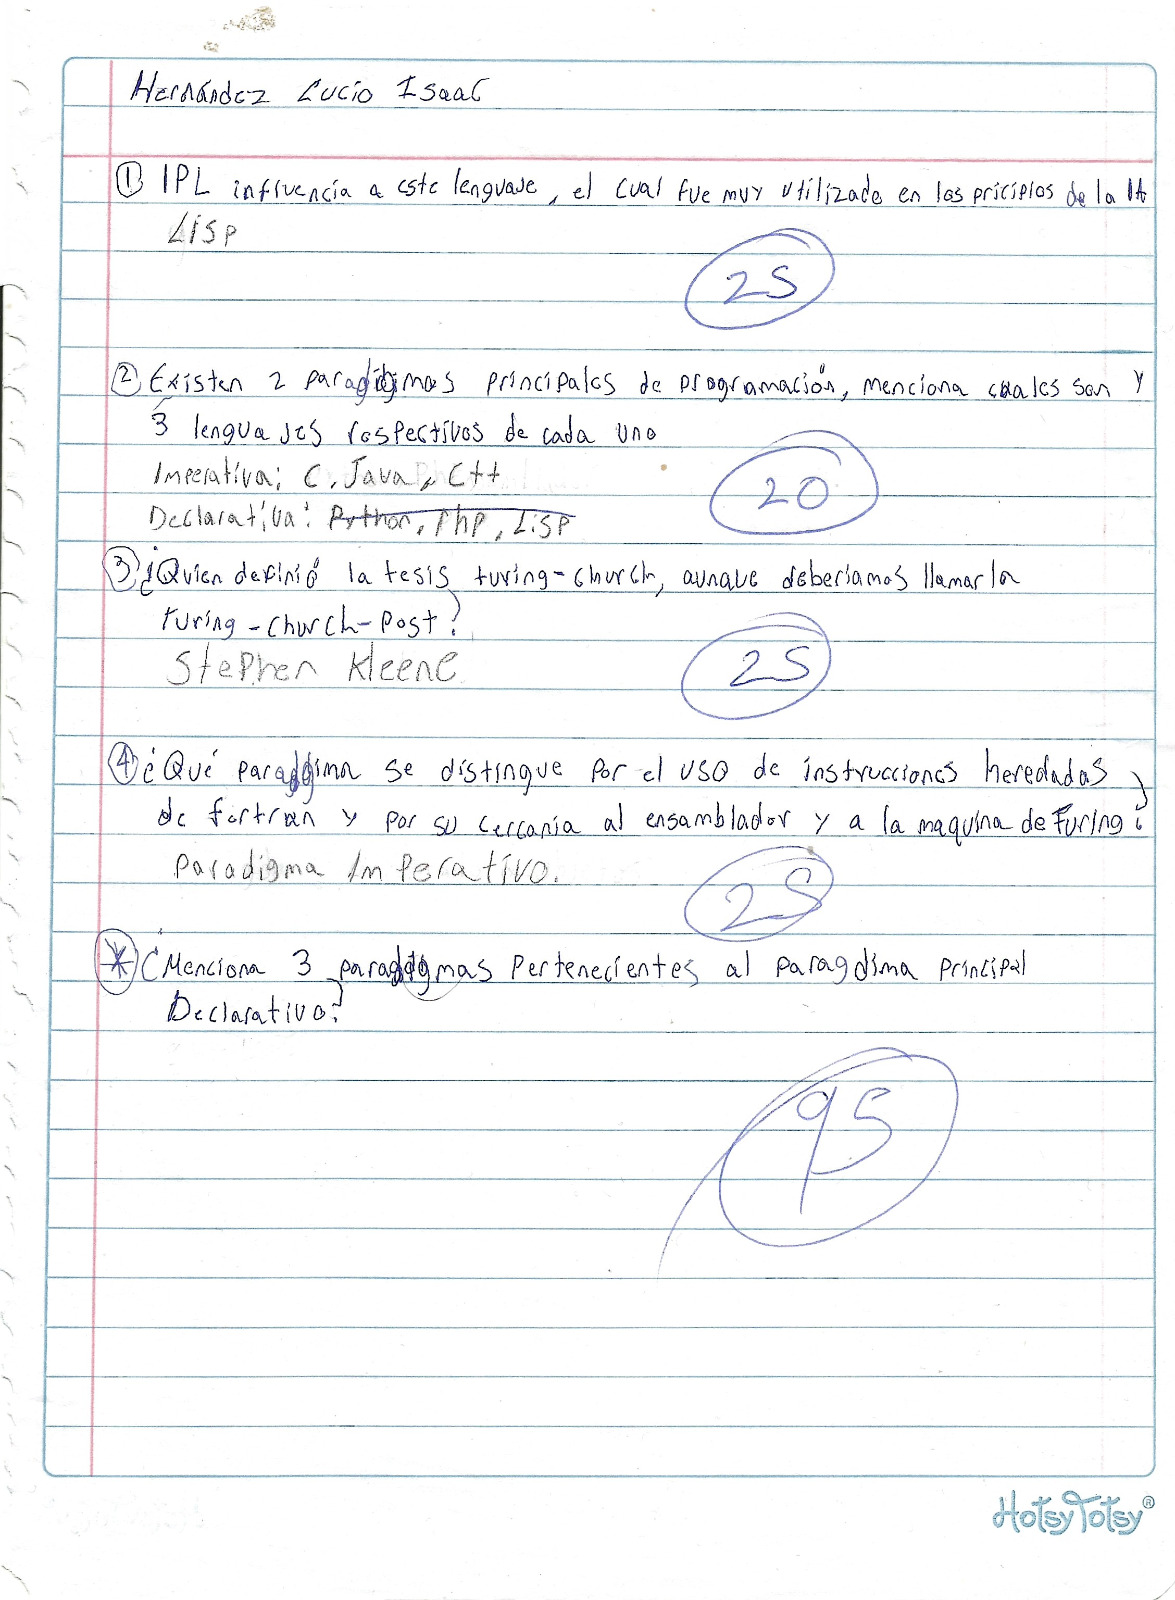 Hernández Lucio Isaac
① IPL influencía a este lenguaje, el cual fue muy utilizado en los pricipios de la IA
Lisp
25
② Existen 2 paradigmas principales de programación, menciona cuales son y
3 lenguajes respectivos de cada uno
Imperativa: C, Java, C++
20
Declarativa: Python, Php, Lisp
③ ¿Quien definió la tesis turing-church, aunque deberíamos llamarla
turing-church-post?
Stephen Kleene
25
④ ¿Qué paradigma se distingue por el uso de instrucciones heredadas
de fortran y por su cercanía al ensamblador y a la maquina de Turing?
Paradigma Imperativo.
25
* ¿Menciona 3 paradigmas pertenecientes al paragdima principal
Declarativo?
95
HotsyTotsy®